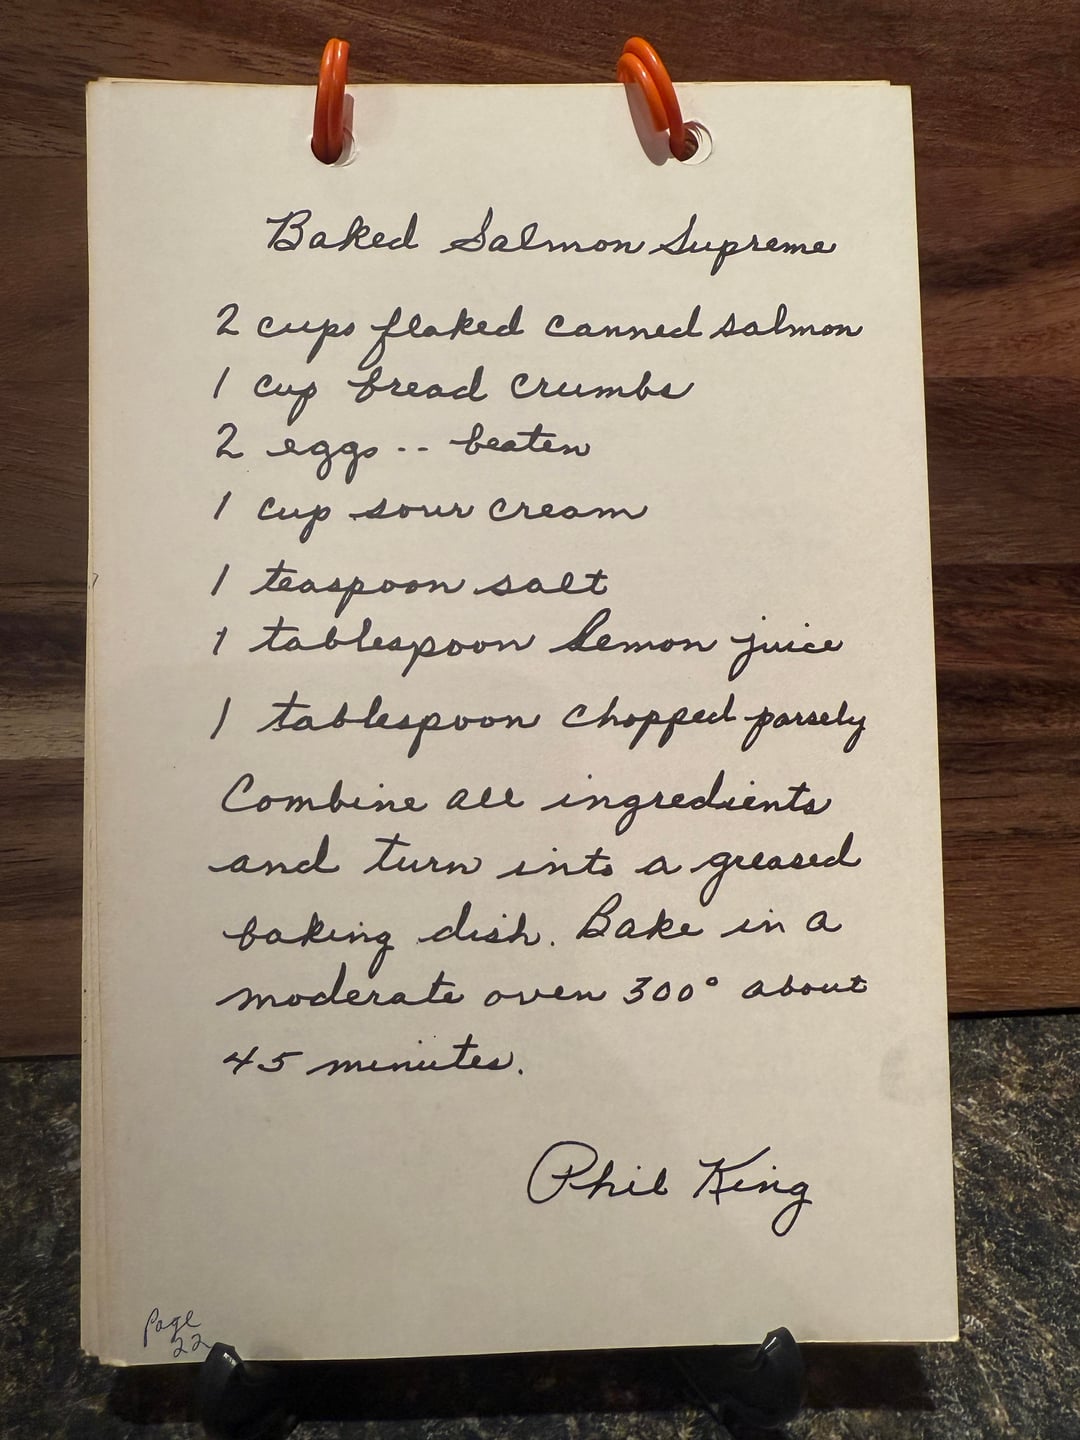 Baked Salmon Supreme
2 cups flaked canned salmon
1 cup bread crumbs
2 eggs -- beaten
1 cup sour cream
1 teaspoon salt
1 tablespoon lemon juice
1 tablespoon chopped parsely
Combine all ingredients
and turn into a greased
baking dish. Bake in a
moderate oven 300° about
45 minutes.
Phil King
Page
22